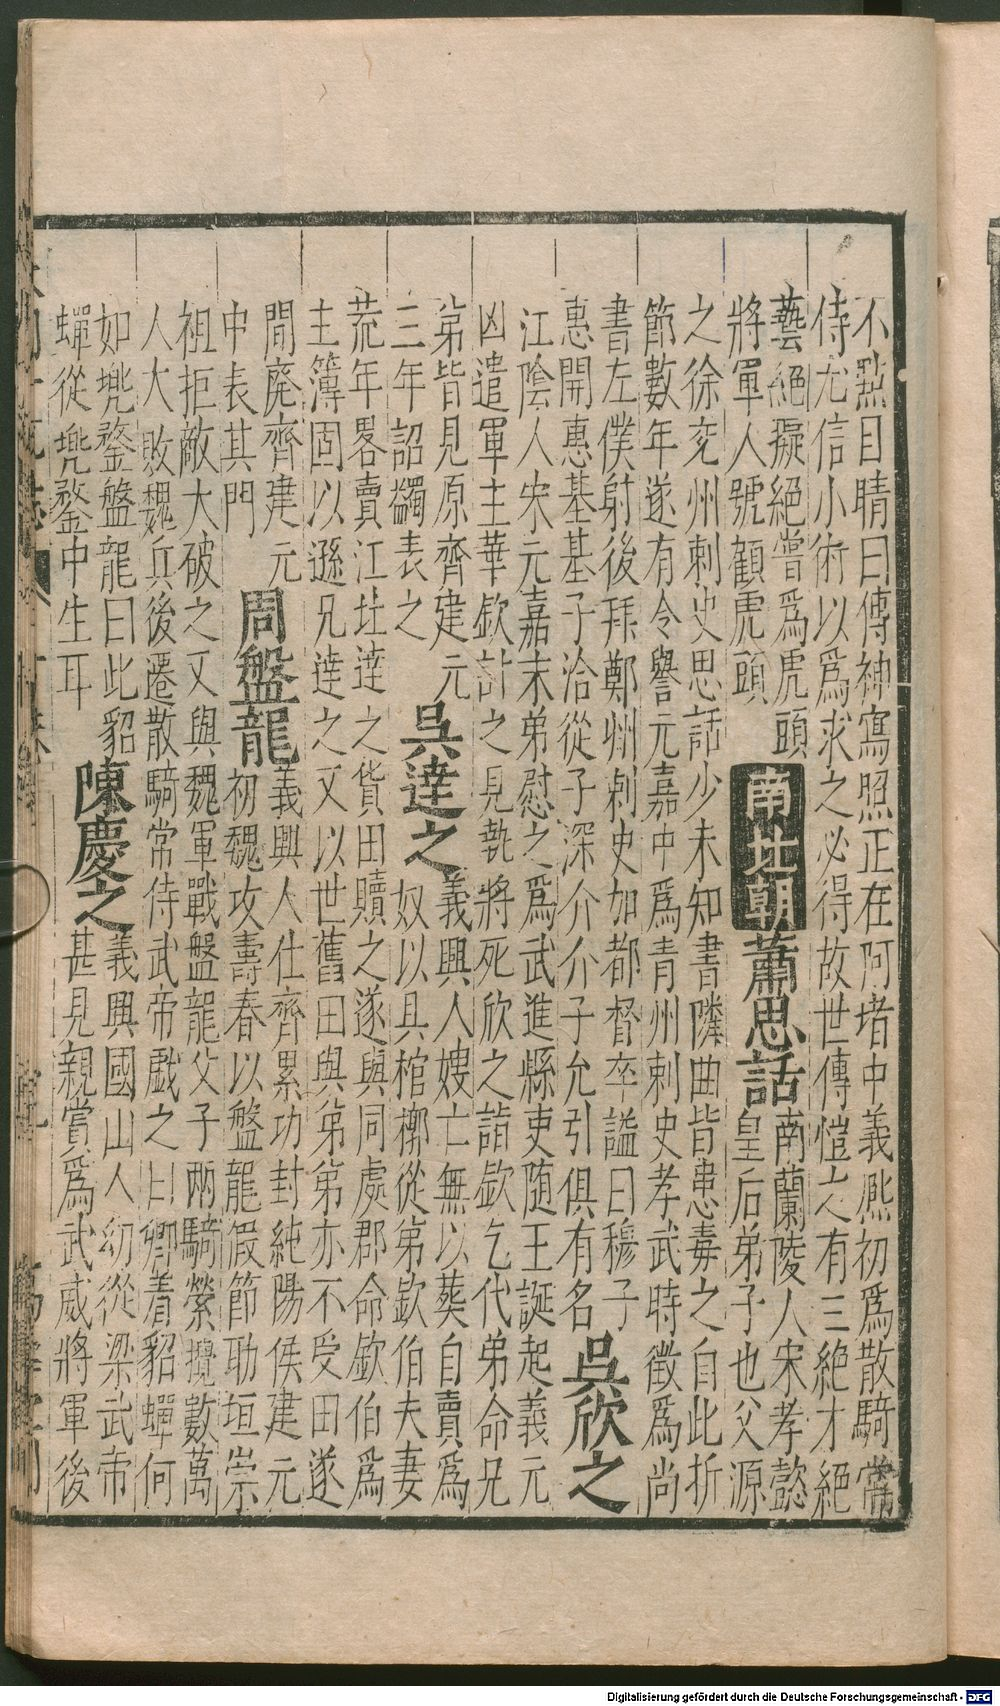 不點目睛曰傳神寫照正在阿堵中義熈初爲散騎常
侍尤信小術以爲求之必得故世傳愷之有三絕才絕
藝絕癡絕嘗爲虎頭
將軍人號顧虎頭
南北朝
蕭思話
南蘭陵人宋孝懿
皇后弟子也父源
之徐兖州刺史思話少未知書隣曲皆患毒之自此折
節數年遂有令譽元嘉中爲青州刺史孝武時徵爲尚
書左僕射後拜鄭州刺史加都督卒謚曰穆子
惠開惠基基子洽從子深介介子允引俱有名
吳欣之
江陰人宋元嘉末弟慰之爲武進縣吏随王誕起義元
凶遣軍主華欽討之見執將死欣之詣欽乞代弟命兄
弟皆見原齊建元
三年詔蠲表之
吳逹之
義興人嫂亡無以葬自賣爲
奴以具棺槨從弟欽伯夫妻
荒年畧賣江北逹之貨田贖之遂與同處郡命欽伯爲
主簿固以遜兄逹之又以世舊田與弟弟亦不受田遂
閒廢齊建元
中表其門
周盤龍
義興人仕齊累功封純陽侯建元
初魏攻壽春以盤龍假節助垣崇
祖拒敵大破之又與魏軍戰盤龍父子兩騎縈攪數萬
人大敗魏兵後遷散騎常侍武帝戲之曰卿着貂蟬何
如兠鍪盤龍曰此貂
蟬從兠鍪中生耳
陳慶之
義興國山人幼從梁武帝
甚見親賞爲武威將軍後
Digitalisierung gefördert durch die Deutsche Forschungsgemeinschaft - DFG